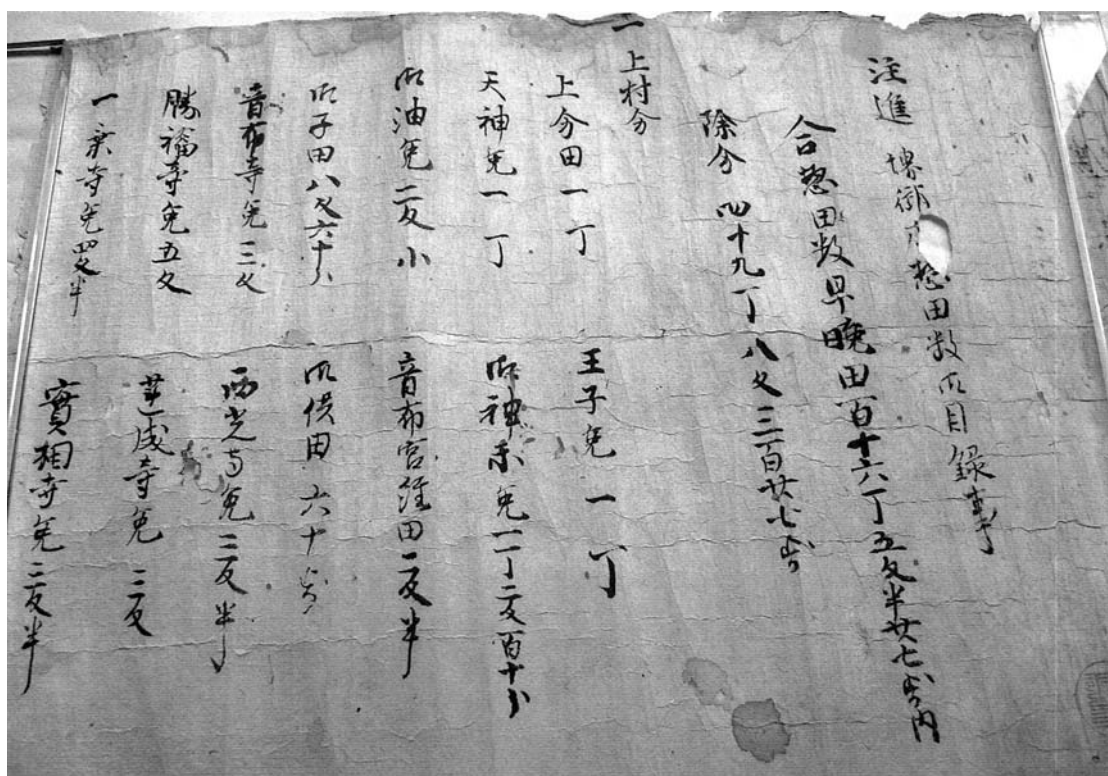 注進 堺御庄惣田数所目録事
合惣田数早晩田百十六丁五反半廿七歩内
除分 四十九丁八反三百廿七歩
一上村分
上分田一丁 王子免一丁
天神免一丁 御神楽免一丁二反百十歩
御油免二反小 音布宮経田二反半
御子田八反六十歩 御供田六十歩
音布寺免三反 西光寺免三反半
勝福寺免五反 蓮成寺免三反
一乗寺免四反半 實相寺免三反半